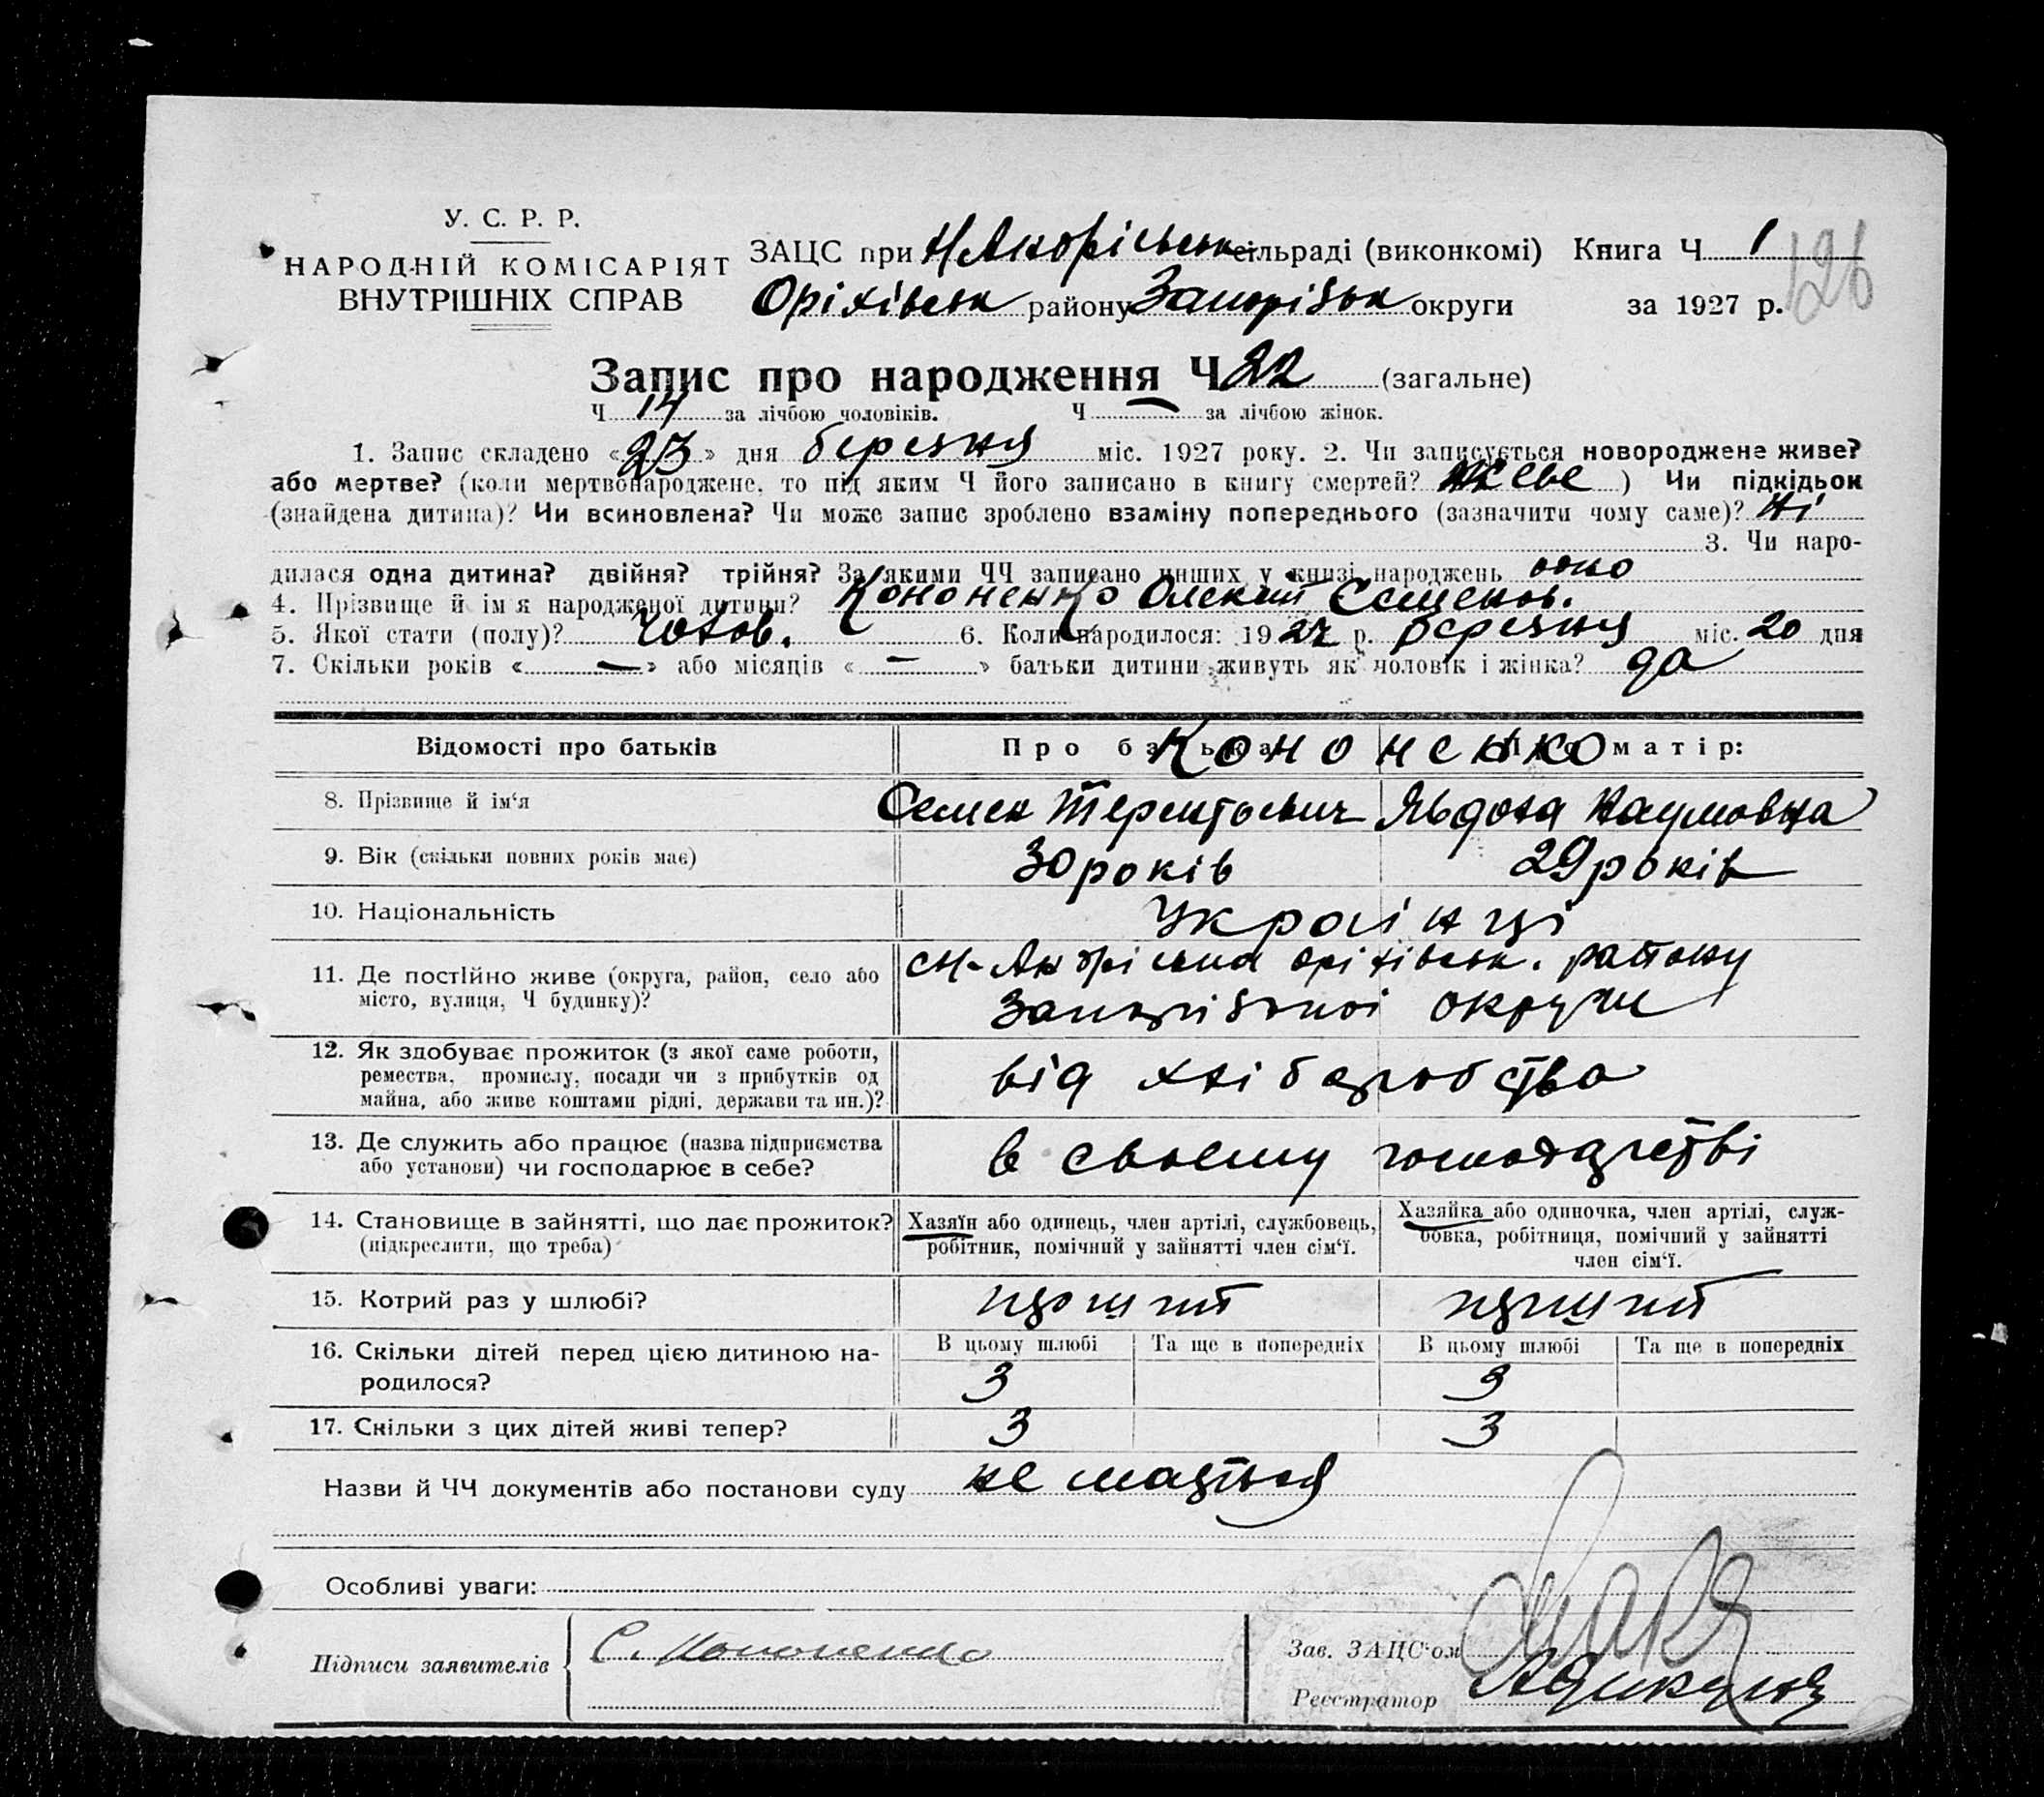 У. С. Р. Р.
НАРОДНІЙ КОМІСАРІЯТ
ВНУТРІШНІХ СПРАВ
ЗАЦС при сільраді (виконкомі) Книга Ч 1
126
Оріхівськ району Запоріжськ округи за 1927 р.
Запис про народження Ч 22 (загальне)
Ч 14 за лічбою чоловіків. Ч — за лічбою жінок.
1. Запис складено « 23 » дня березня міс. 1927 року. 2. Чи записується новороджене живе?
або мертве? (коли мертвонароджене, то під яким Ч його записано в книгу смертей? живе ) Чи підкідьок
(знайдена дитина)? Чи всиновлена? Чи може запис зроблено взаміну попереднього (зазначити чому саме)? ні
3. Чи наро-
дилася одна дитина? двійня? трійня? За якими ЧЧ записано инших у книзі народжень одно
4. Прізвище й ім я народженої дитини? Кононенко Олексій Семенов.
5. Якої стати (полу)? Чолов. 6. Коли народилося: 1927 р. березня міс. 20 дня
7. Скільки років « — » або місяців « — » батьки дитини живуть як чоловік і жінка? да
Відомості про батьків Про батька Про матір:
Кононенко
8. Прізвище й ім‘я Семен Терентьевич Явдоха Наумовна
9. Вік (скільки повних років має) 30 років 29 років
10. Національність Українці
11. Де постійно живе (округа, район, село або
місто, вулиця, Ч будинку)? оріхівськ. району
округи
12. Як здобуває прожиток (з якої саме роботи,
ремества, промислу, посади чи з прибутків од
майна, або живе коштами рідні, держави та ин.)? від хліборобства
13. Де служить або працює (назва підприємства
або установи) чи господарює в себе? в своєму господарстві
14. Становище в зайнятті, що дає прожиток?
(підкреслити, що треба)
Хазяїн або одинець, член артілі, службовець,
робітник, помічний у зайнятті член сім‘ї.
Хазяйка або одиночка, член артілі, служ-
бовка, робітниця, помічний у зайнятті
член сім‘ї.
15. Котрий раз у шлюбі?
В цьому шлюбі Та ще в попередніх В цьому шлюбі Та ще в попередніх
16. Скільки дітей перед цією дитиною на-
родилося? 3 3
17. Скільки з цих дітей живі тепер? 3 3
Назви й ЧЧ документів або постанови суду не
Особливі уваги:
Підписи заявителів С. Кононенко
Зав. ЗАЦС‘ом
Реєстратор